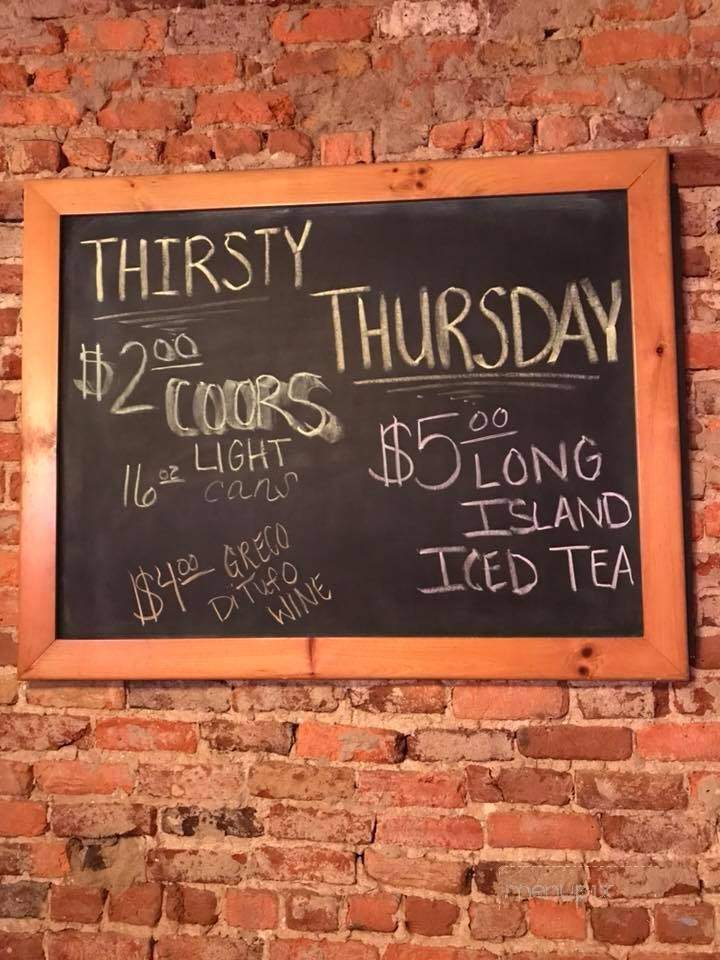 THIRSTY
THURSDAY
$2.00 COORS
LIGHT
16oz cans
$4.00 GRECO
Di TUFO
WINE
$5.00 LONG
ISLAND
ICED TEA
menupix